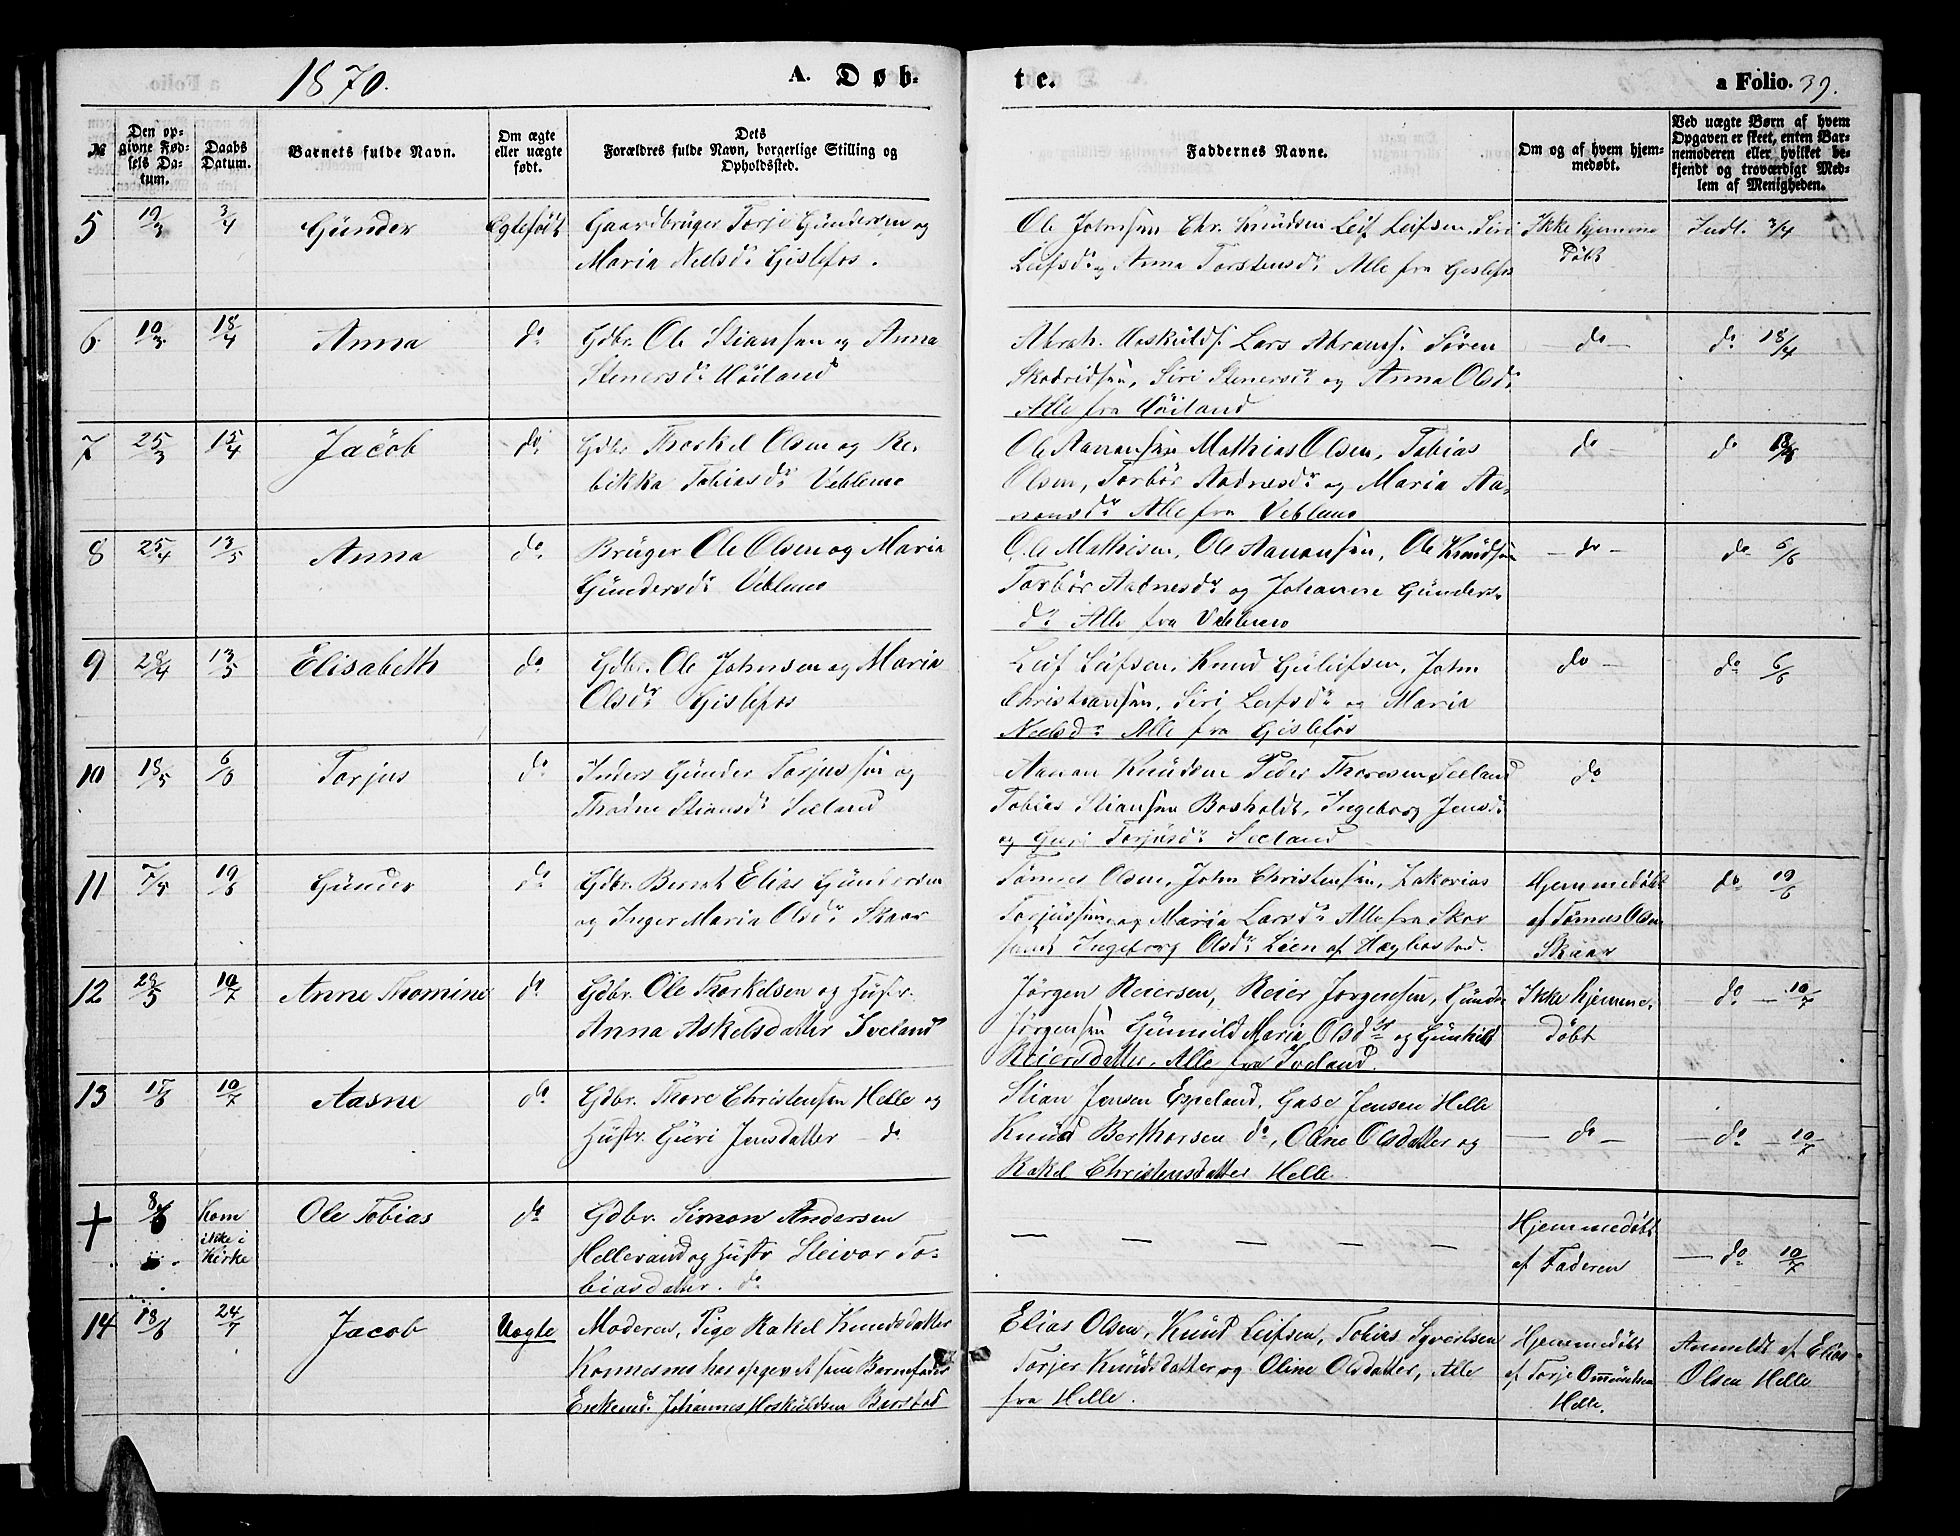 1870.
A. Døb-
te.
a Folio. 39.
№
Den opgivne Fødsels Datum.
Daabs Datum.
Barnets fulde Navn.
Om ægte eller uægte født.
Dets Forældres fulde Navn, borgerlige Stilling og Opholdssted.
Faddernes Navne.
Om og af hvem hjemmedøbt.
Ved uægte Børn af hvem Opgaven er skeet, enten Barnemoderen eller hvilket bekjendt og troværdigt Medlem af Menigheden.
5 19/3 3/4 Günder Egtefødt
Gaardbruger Torje Gündersen og
Maria Neelsdr Gislefos.
Ole Johnsen Chr. Knudsen Leif Leifsen, Siri
Leifsdr og Anna Torstensdr Alle fra Gislefos
Ikke hjemme
døbt
Indt. 3/4
6 10/3 18/4 Anna do
Gdbr. Ole Stiansen og Anna
Stenersdr Höiland
Abrah. Aaskulds. Lars Abrams. Sören
Skadridsen, Siri Stenersdr og Anna Olsdr
Alle fra Höiland
— do —
do 18/4
7 25/3 15/4 Jacob do
Gdbr. Thorkel Olsen og Re-
bikka Tobiasdr Veblemo
Ole Aanansen Mathias Olsen, Tobias
Olsen, Torbör Aadnesdr og Maria Aa-
nonsdr Alle fra Veblemo
do
do
8 25/4 13/5 Anna do
Brüger Ole Olsen og Maria
Gündersdr Veblemo
Ole Mathisen, Ole Aanansen, Ole Knudsen
Torbör Aadnesdr og Johanne Günders-
dr Alle fra Veblemo
— do —
do 6/6
9 28/4 13/5 Elisabeth do
Gdbr. Ole Johnsen og Maria
Olsdr Gislefos
Leif Leifsen, Knud Guleifsen, John
Christiansen, Siri Leifsdr og Maria
Neelsdr Alle fra Gislefos
do —
do 6/6
10 18/5 6/6 Torjus do
Inders Günder Torjussen og
Thodne Stiansdr Seeland
Aanan Knudsen Peder Thoresen Seeland
Tobias Stiansen Bosholdt, Ingeborg Jensdr
og Guri Torjusdr Seeland
do
11 19/6 Günder do
Gdbr. Berent Elias Gündersen
og Inger Maria Olsdr Skaar
Tönnes Olsen, John Christensen, Zakarias
Torjussen og Maria Larsdr Alle fra Skar
samt Ingeborg Olsdr Leen af Hægbostad.
Hjemmedöbt
af Tönnes Olsen
Skaar
do 19/6
12 29/5 10/7 Anne Thomine do
Gdbr. Ole Thorkelsen og Hustr.
Anna Askelsdatter Iveland
Jörgen Reiersen, Reier Jörgensen, Günder
Jörgensen Günnild Maria Olsdtr og Günhild
Reiersdatter, Alle fra Iveland.
Ikke hjemme-
döbt
— do — 10/7
13 15/6 10/7 Aasne do
Gdbr. Thore Christensen Helle og
Hustr. Güri Jensdatter — do
Stian Jensen Espeland, Gase Jensen Helle
Knud Berthorsen do, Oline Olsdatter og
Rakel Christensdatter Helle.
— do —
— do — 10/7
+ 8/6 Kom
ikke i
Kirke
Ole Tobias do
Gdbr. Simon Andersen
Hellevand og Hustr Steivor To-
biasdatter. do
— — — — —
Hjemmedöbt
af Faderen
— do 10/7
14 18/6 24/7 Jacob Uægte
Moderen, Pige Rakel Knudsdatter
Konnesmo har opgivet som Barnefader
Enkem. Johannes Hoskuldsen Barstad
Elias Olsen, Knud Leifsen, Tobias Syvertsen
Torjer Knudsdatter og Oline Olsdatter, Alle
fra Helle.
Hjemmedöbt
af Torje Omundsen
Helle.
Anmeldt af Elias
Olsen Helle